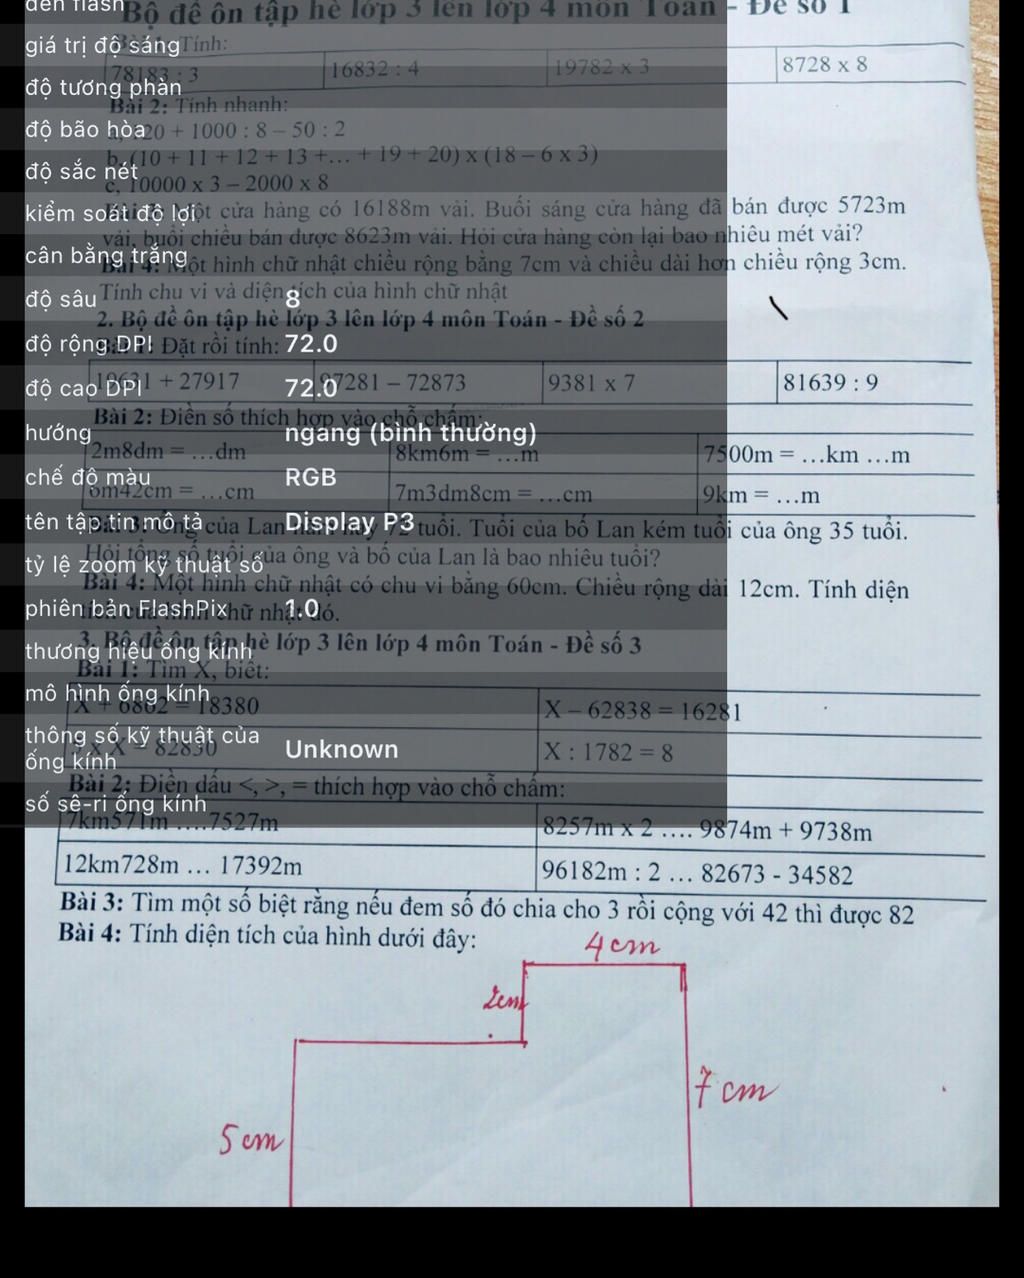 đèn flash
Bộ đề ôn tập hè lớp 3 lên lớp 4 môn Toán - Đề số 1
giá trị độ sáng
Tính:
78183 : 3
16832 : 4
19782 x 3
8728 x 8
độ tương phản
Bài 2: Tính nhanh:
độ bão hòa
20 + 1000 : 8 – 50 : 2
b, (10 + 11 + 12 + 13 +... + 19 + 20) x (18 – 6 x 3)
độ sắc nét
c, 10000 x 3 – 2000 x 8
kiểm soát độ lợi
Một cửa hàng có 16188m vải. Buổi sáng cửa hàng đã bán được 5723m
vải, buổi chiều bán được 8623m vải. Hỏi cửa hàng còn lại bao nhiêu mét vải?
cân bằng trắng
Bài 4: Một hình chữ nhật chiều rộng bằng 7cm và chiều dài hơn chiều rộng 3cm.
Tính chu vi và diện tích của hình chữ nhật
độ sâu 8
2. Bộ đề ôn tập hè lớp 3 lên lớp 4 môn Toán - Đề số 2
độ rộng DPI 72.0
Đặt rồi tính:
độ cao DPI 72.0
19631 + 27917
97281 – 72873
9381 x 7
81639 : 9
Bài 2: Điền số thích hợp vào chỗ chấm:
hướng ngang (bình thường)
2m8dm = ...dm
8km6m = ...m
7500m = ...km ...m
chế độ màu RGB
6m42cm = ...cm
7m3dm8cm = ...cm
9km = ...m
tên tập tin mô tả Display P3
Bài 3: Ông của Lan năm nay 72 tuổi. Tuổi của bố Lan kém tuổi của ông 35 tuổi.
Hỏi tổng số tuổi của ông và bố của Lan là bao nhiêu tuổi?
tỷ lệ zoom kỹ thuật số
Bài 4: Một hình chữ nhật có chu vi bằng 60cm. Chiều rộng dài 12cm. Tính diện
tích của hình chữ nhật đó.
phiên bản FlashPix 1.0
3. Bộ đề ôn tập hè lớp 3 lên lớp 4 môn Toán - Đề số 3
thương hiệu ống kính
Bài 1: Tìm X, biết:
mô hình ống kính
X + 6862 = 18380
X – 62838 = 16281
thông số kỹ thuật của
ống kính Unknown
x X = 82830
X : 1782 = 8
Bài 2: Điền dấu <, >, = thích hợp vào chỗ chấm:
số sê-ri ống kính
7km571m ....7527m
8257m x 2 .... 9874m + 9738m
12km728m ... 17392m
96182m : 2 ... 82673 - 34582
Bài 3: Tìm một số biết rằng nếu đem số đó chia cho 3 rồi cộng với 42 thì được 82
Bài 4: Tính diện tích của hình dưới đây:
4cm
2cm
7 cm
5cm